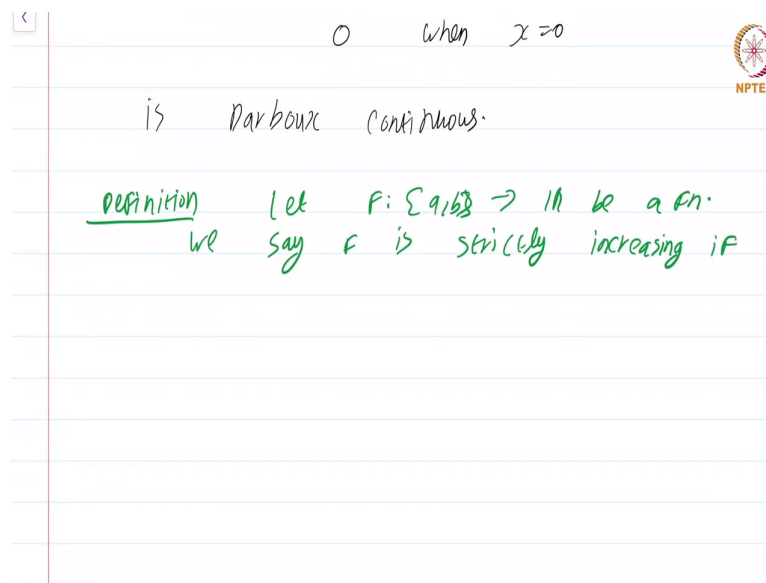 0 when x=0
NPTE
is Darboux continuous.
Definition Let F: [a,b] → IR be a fn.
We say F is strictly increasing if